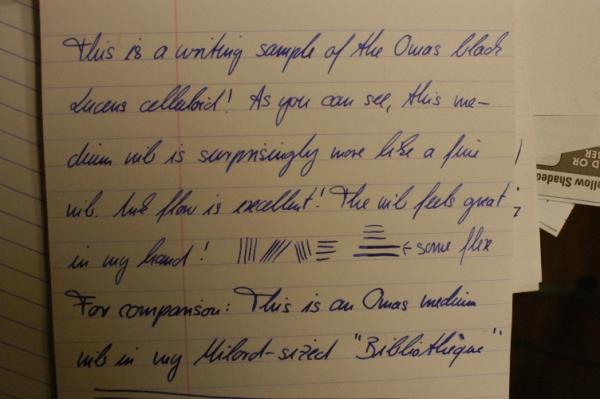 This is a writing sample of the Omas black
Lucens celluloid! As you can see, this me-
dium nib is surprisingly more like a fine
nib. Ink flow is excellent! The nib feels great
in my hand! ← some flex
For comparison: This is an Omas medium
nib in my Milord-sized "Bibliothèque"
llow Shaded
D OR
SER